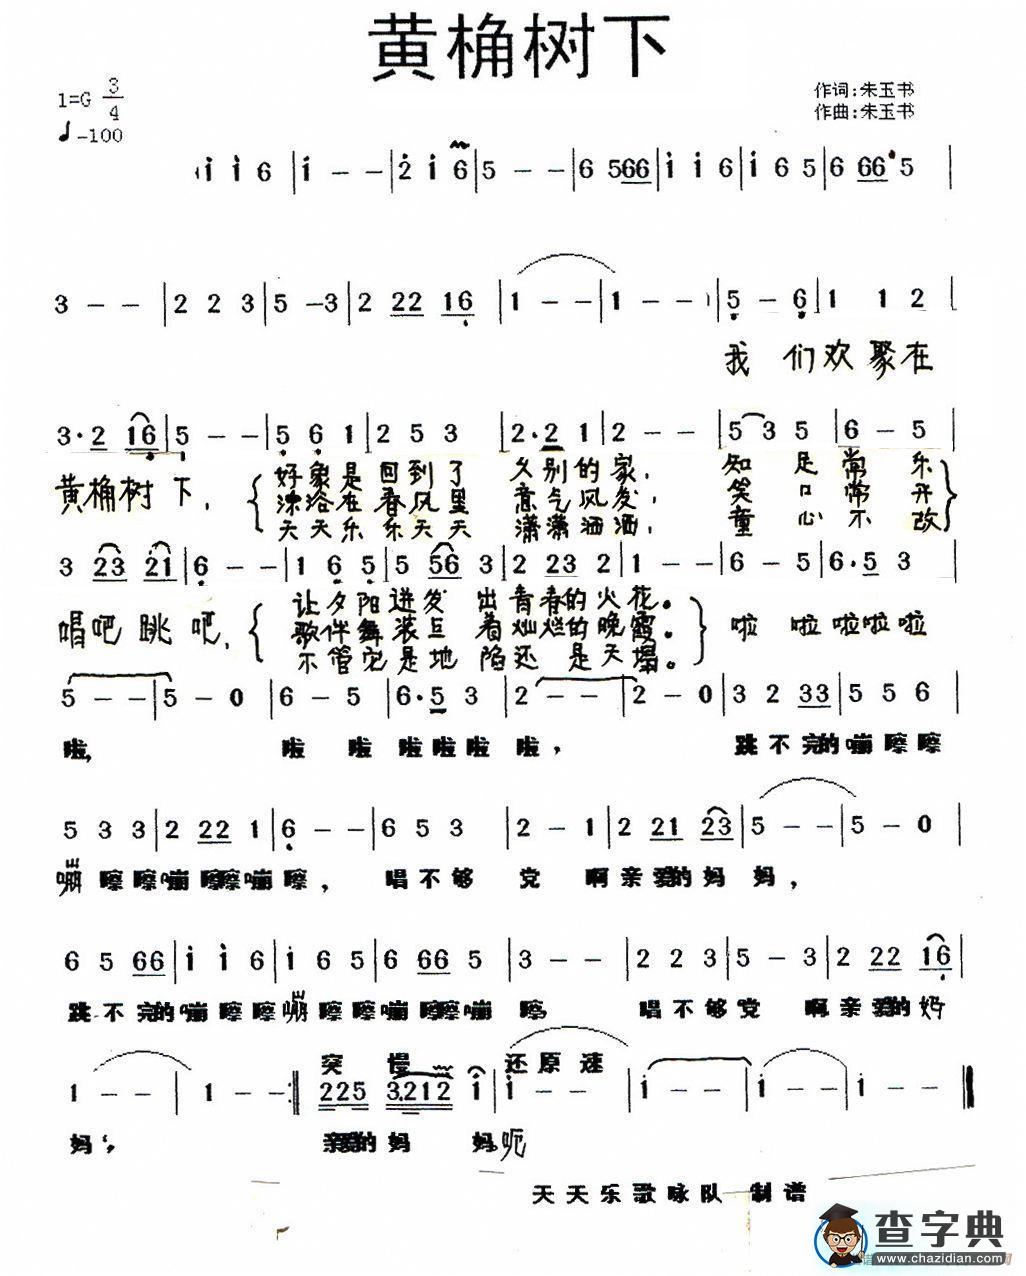 黄桷树下
1=G 3/4
♩-100
作词:朱玉书
作曲:朱玉书
i i 6 | i - - | 2 i 6 | 5 - - | 6 5 66 | i i 6 | i 6 5 | 6 66 5 |
3 - - | 2 2 3 | 5 - 3 | 2 22 16 | 1 - - | 1 - - | 5 - 6 | 1 1 2 |
我们欢聚在
3· 2 16 | 5 - - | 5 6 1 | 2 5 3 | 2· 2 1 | 2 - - | 5 3 5 | 6 - 5 |
黄桷树下, 好象是回到了 久别的家, 知足常乐
沐浴在春风里 意气风发, 笑口常开
天天乐乐天天 潇潇洒洒, 童心不改
3 23 21 | 6 - - | 1 6 5 | 5 56 3 | 2 23 2 | 1 - - | 6 - 5 | 6· 5 3 |
唱吧跳吧, 让夕阳迸发 出青春的火花。 啦 啦啦啦啦
歌伴舞装 着灿烂的晚霞。
不管它是地 陷还是天塌。
5 - - | 5 - 0 | 6 - 5 | 6· 5 3 | 2 - - | 2 - 0 | 3 2 33 | 5 5 6 |
啦, 啦 啦 啦啦啦 啦, 跳不完的嘣嚓嚓
5 3 3 | 2 22 1 | 6 - - | 6 5 3 | 2 - 1 | 2 21 23 | 5 - - | 5 - 0 |
嘣嚓嚓嘣嚓嚓嘣嚓, 唱不够 党 啊亲爱的妈 妈,
6 5 66 | i i 6 | i 6 5 | 6 66 5 | 3 - - | 2 2 3 | 5 - 3 | 2 22 16 |
跳不完的嘣嚓嚓嘣嚓嚓嘣嚓嚓嘣 嚓, 唱不够党 啊亲爱的妈
突 慢 还原速
1 - - | 1 - - :‖ 225 3.212 i | i - - | i - - | i - - ‖
妈, 亲爱的妈 妈呃
天天乐歌咏队 制谱
查字典
www.chazidian.com